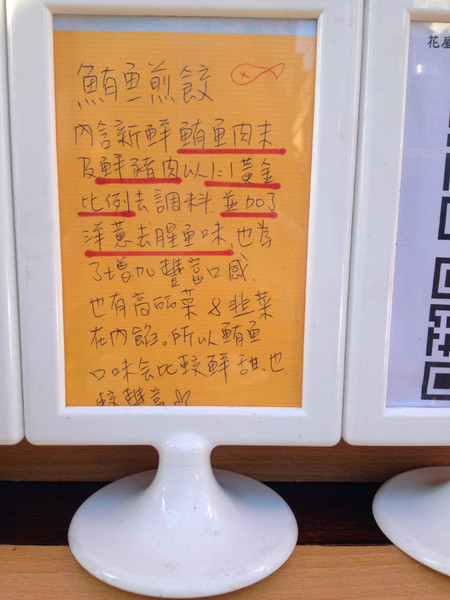 鮪魚煎餃
內含新鮮鮪魚肉末
及鮮豬肉以1:1黃金
比例去調料,並加了
洋蔥去腥魚味,也為
了增加豐富口感、
也有高麗菜&韭菜
在內餡。所以鮪魚
口味会比較鮮甜、也
較豐富
花屋